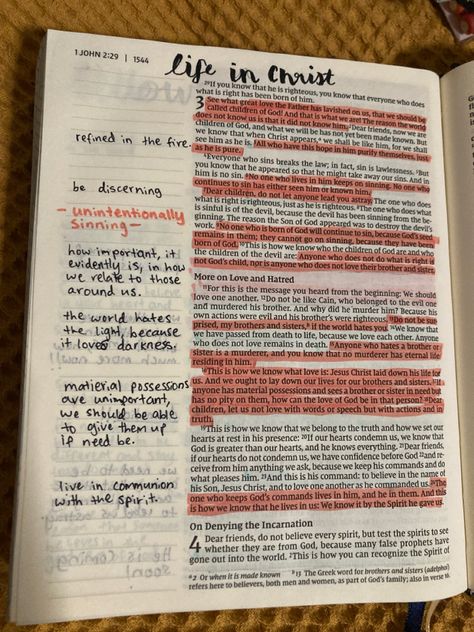 1 JOHN 2:29 | 1544
life in Christ
refined in the fire.
be discerning
- unintentionally
sinning -
how important, it
evidently is, in how
we relate to those
around us.
the world hates
the light, because
it loves darkness.
matierial possessions
are unimportant,
we should be able
to give them up
if need be.
live in communion
with the spirit.
29If you know that he is righteous, you know that everyone who does
what is right has been born of him.
3 See what great love the Father has lavished on us, that we should be
called children of God! And that is what we are! The reason the world
does not know us is that it did not know him. 2Dear friends, now we are
children of God, and what we will be has not yet been made known. But
we know that when Christ appears,a we shall be like him, for we shall
see him as he is. 3All who have this hope in him purify themselves, just
as he is pure.
4Everyone who sins breaks the law; in fact, sin is lawlessness. 5But
you know that he appeared so that he might take away our sins. And in
him is no sin. 6No one who lives in him keeps on sinning. No one who
continues to sin has either seen him or known him.
7Dear children, do not let anyone lead you astray. The one who does
what is right is righteous, just as he is righteous. 8The one who does what
is sinful is of the devil, because the devil has been sinning from the be-
ginning. The reason the Son of God appeared was to destroy the devil's
work. 9No one who is born of God will continue to sin, because God's seed
remains in them; they cannot go on sinning, because they have been
born of God. 10This is how we know who the children of God are and who
the children of the devil are: Anyone who does not do what is right is not
God's child, nor is anyone who does not love their brother and sister.
More on Love and Hatred
11For this is the message you heard from the beginning: We should
love one another. 12Do not be like Cain, who belonged to the evil one
and murdered his brother. And why did he murder him? Because his
own actions were evil and his brother's were righteous. 13Do not be sur-
prised, my brothers and sisters,b if the world hates you. 14We know that
we have passed from death to life, because we love each other. Anyone
who does not love remains in death. 15Anyone who hates a brother or
sister is a murderer, and you know that no murderer has eternal life
residing in him.
16This is how we know what love is: Jesus Christ laid down his life for
us. And we ought to lay down our lives for our brothers and sisters. 17If
anyone has material possessions and sees a brother or sister in need but
has no pity on them, how can the love of God be in that person? 18Dear
children, let us not love with words or speech but with actions and in
truth.
19This is how we know that we belong to the truth and how we set our
hearts at rest in his presence: 20If our hearts condemn us, we know that
God is greater than our hearts, and he knows everything. 21Dear friends,
if our hearts do not condemn us, we have confidence before God 22and re-
ceive from him anything we ask, because we keep his commands and do
what pleases him. 23And this is his command: to believe in the name of
his Son, Jesus Christ, and to love one another as he commanded us. 24The
one who keeps God's commands lives in him, and he in them. And this
is how we know that he lives in us: We know it by the Spirit he gave us.
On Denying the Incarnation
4 Dear friends, do not believe every spirit, but test the spirits to see
whether they are from God, because many false prophets have
gone out into the world. 2This is how you can recognize the Spirit of
a2 Or when it is made known b13 The Greek word for brothers and sisters (adelphoi)
refers here to believers, both men and women, as part of God's family; also in verse 16.